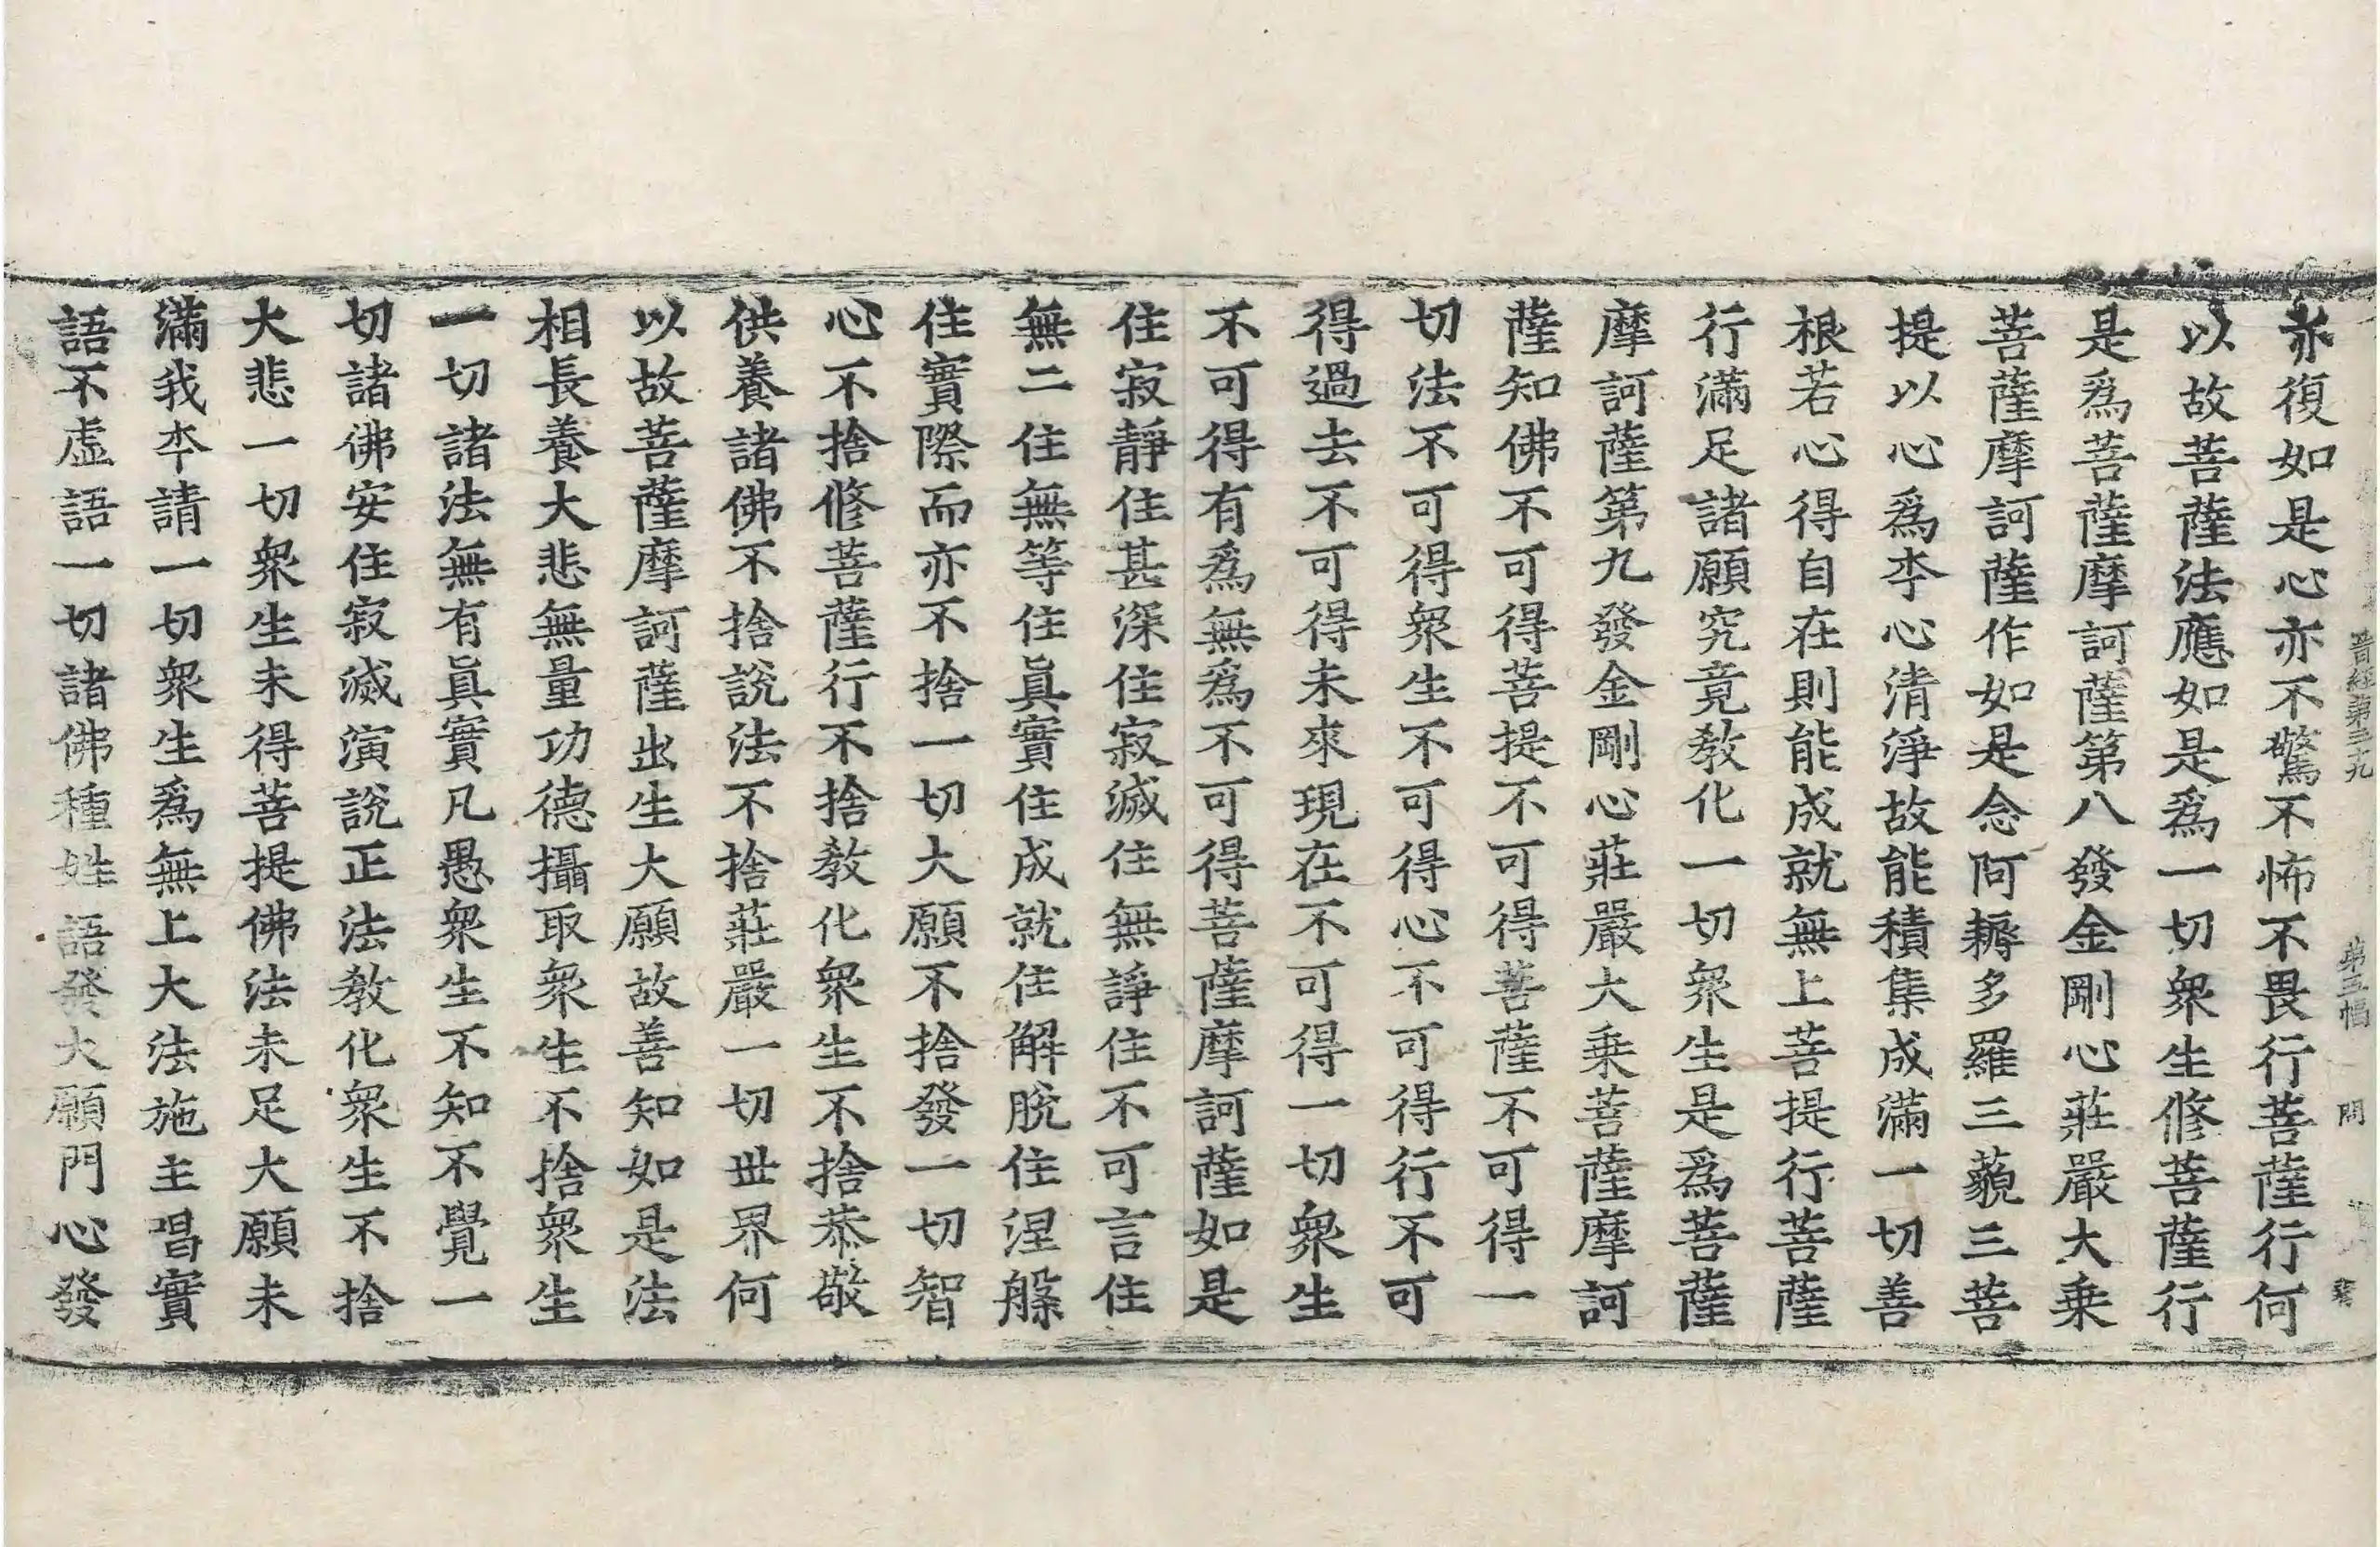 晉經第三九 第五幅 問
亦復如是心亦不驚不怖不畏行菩薩行何
以故菩薩法應如是爲一切衆生修菩薩行
是爲菩薩摩訶薩第八發金剛心莊嚴大乗
菩薩摩訶薩作如是念阿耨多羅三藐三菩
提以心爲夲心清淨故能積集成滿一切善
根若心得自在則能成就無上菩提行菩薩
行滿足諸願究竟教化一切衆生是爲菩薩
摩訶薩第九發金剛心莊嚴大乗菩薩摩訶
薩知佛不可得菩提不可得菩薩不可得一
切法不可得衆生不可得心不可得行不可
得過去不可得未來現在不可得一切衆生
不可得有爲無爲不可得菩薩摩訶薩如是
住寂靜住甚深住寂滅住無諍住不可言住
無二住無等住眞實住成就住解脫住涅槃
住實際而亦不捨一切大願不捨發一切智
心不捨修菩薩行不捨教化衆生不捨恭敬
供養諸佛不捨說法不捨莊嚴一切世界何
以故菩薩摩訶薩出生大願故善知如是法
相長養大悲無量功德攝取衆生不捨衆生
一切諸法無有眞實凡愚衆生不知不覺一
切諸佛安住寂滅演說正法教化衆生不捨
大悲一切衆生未得菩提佛法未足大願未
滿我夲請一切衆生爲無上大法施主唱實
語不虛語一切諸佛種姓語發大願門心發